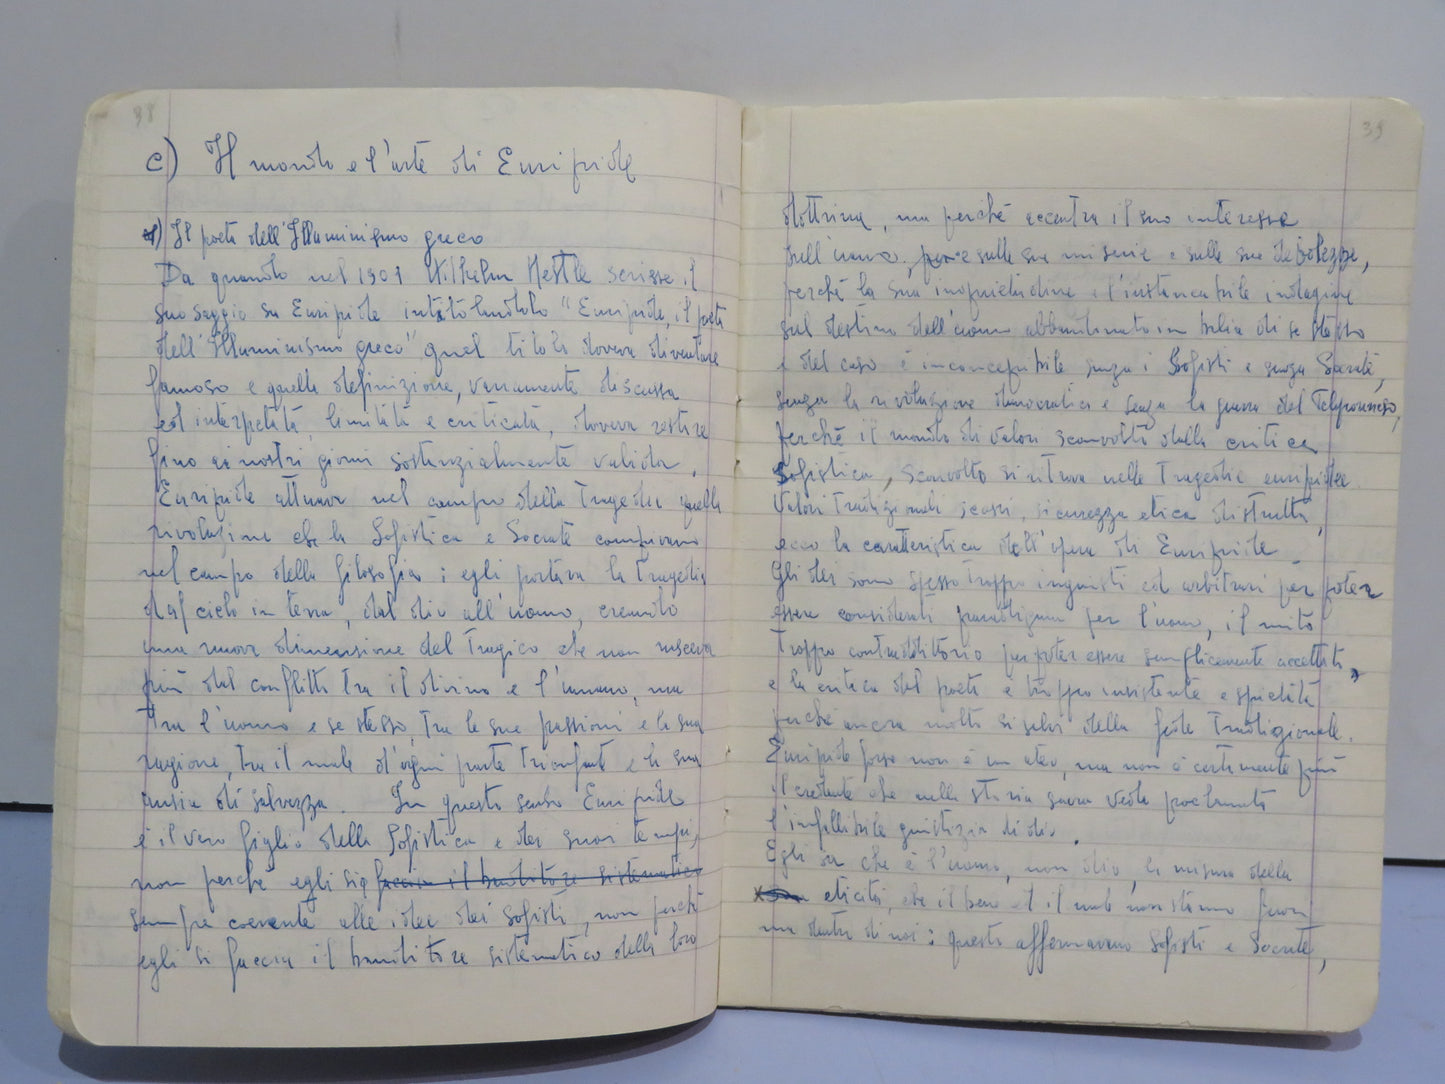 38
c) Il mondo e l'arte di Euripide
1) Il poeta dell'Illuminismo greco
Da quando nel 1901 Wilhelm Nestle scrisse il
suo saggio su Euripide intitolandolo "Euripide, il poeta
dell'Illuminismo greco" quel titolo doveva diventare
famoso e quella definizione, variamente discussa
ed interpretata, limitata e criticata, doveva restare
fino ai nostri giorni sostanzialmente valida.
Euripide attuava nel campo della tragedia quella
rivoluzione che la Sofistica e Socrate compivano
nel campo della filosofia: egli portava la tragedia
dal cielo in terra, dal dio all'uomo, creando
una nuova dimensione del tragico che non nasceva
più dal conflitto tra il divino e l'umano, ma
tra l'uomo e se stesso, tra le sue passioni e la sua
ragione, tra il male d'ogni parte trionfante e la sua
ansia di salvezza. In questo senso Euripide
è il vero figlio della Sofistica e dei suoi tempi,
non perché egli sia faccia il banditore sistematico
sempre coerente alle idee dei sofisti, non perché
egli si faccia il banditore sistematico della loro
39
dottrina, ma perché accentra il suo interesse
sull'uomo, sulle sue miserie e sulle sue debolezze,
perché la sua inquietudine e l'instancabile indagine
sul destino dell'uomo abbandonato in balia di se stesso
e del caso è inconcepibile senza i Sofisti e senza Socrate,
senza la rivoluzione democratica e senza la guerra del Peloponneso,
perché il mondo di valori sconvolto dalla critica
sofistica, sconvolto si ritrova nelle tragedie euripidee.
Valori tradizionali scossi, sicurezza etica distrutta,
ecco la caratteristica dell'opera di Euripide
Gli dei sono spesso troppo ingiusti ed arbitrari per poter
essere considerati paradigma per l'uomo, il mito
troppo contraddittorio per poter essere semplicemente accettato,
e la critica del poeta è troppo insistente e spietata
perché ancora molto si salvi della fede tradizionale.
Euripide forse non è un ateo, ma non è certamente più
il credente che nella storia sacra vede proclamata
l'infallibile giustizia di dio.
Egli sa che è l'uomo, non dio, la misura della
eticità, che il bene ed il male non stanno fuori
ma dentro di noi: questo affermavano Sofisti e Socrate,